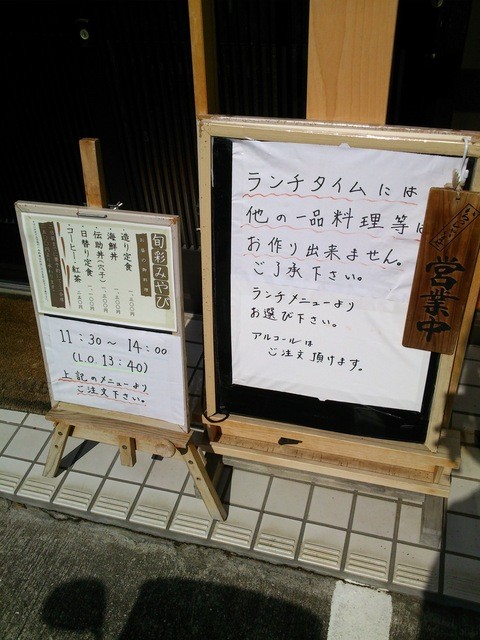 旬彩みやび
造り定食 一、五〇〇円
海鮮丼
伝助丼(穴子)
日替り定食
コーヒー・紅茶
11:30～14:00
(L.O.13:40)
上記のメニューより
ご注文下さい。
ランチタイムには
他の一品料理等は
お作り出来ません。
ご了承下さい。
ランチメニューより
お選び下さい。
アルコールは
ご注文頂けます。
営業中